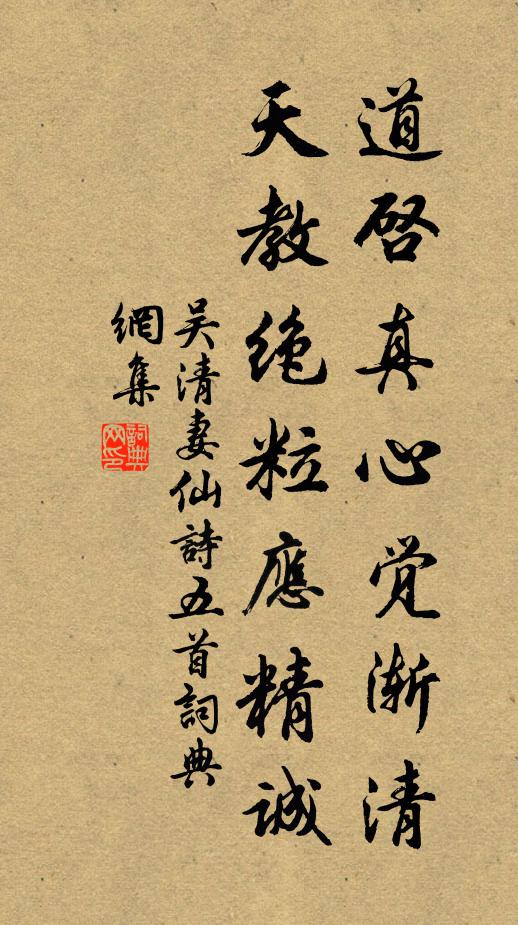 道啓真心覚渐清
天教绝粒應精誠
吴清妻仙詩五首詞典
網集
詞典網印